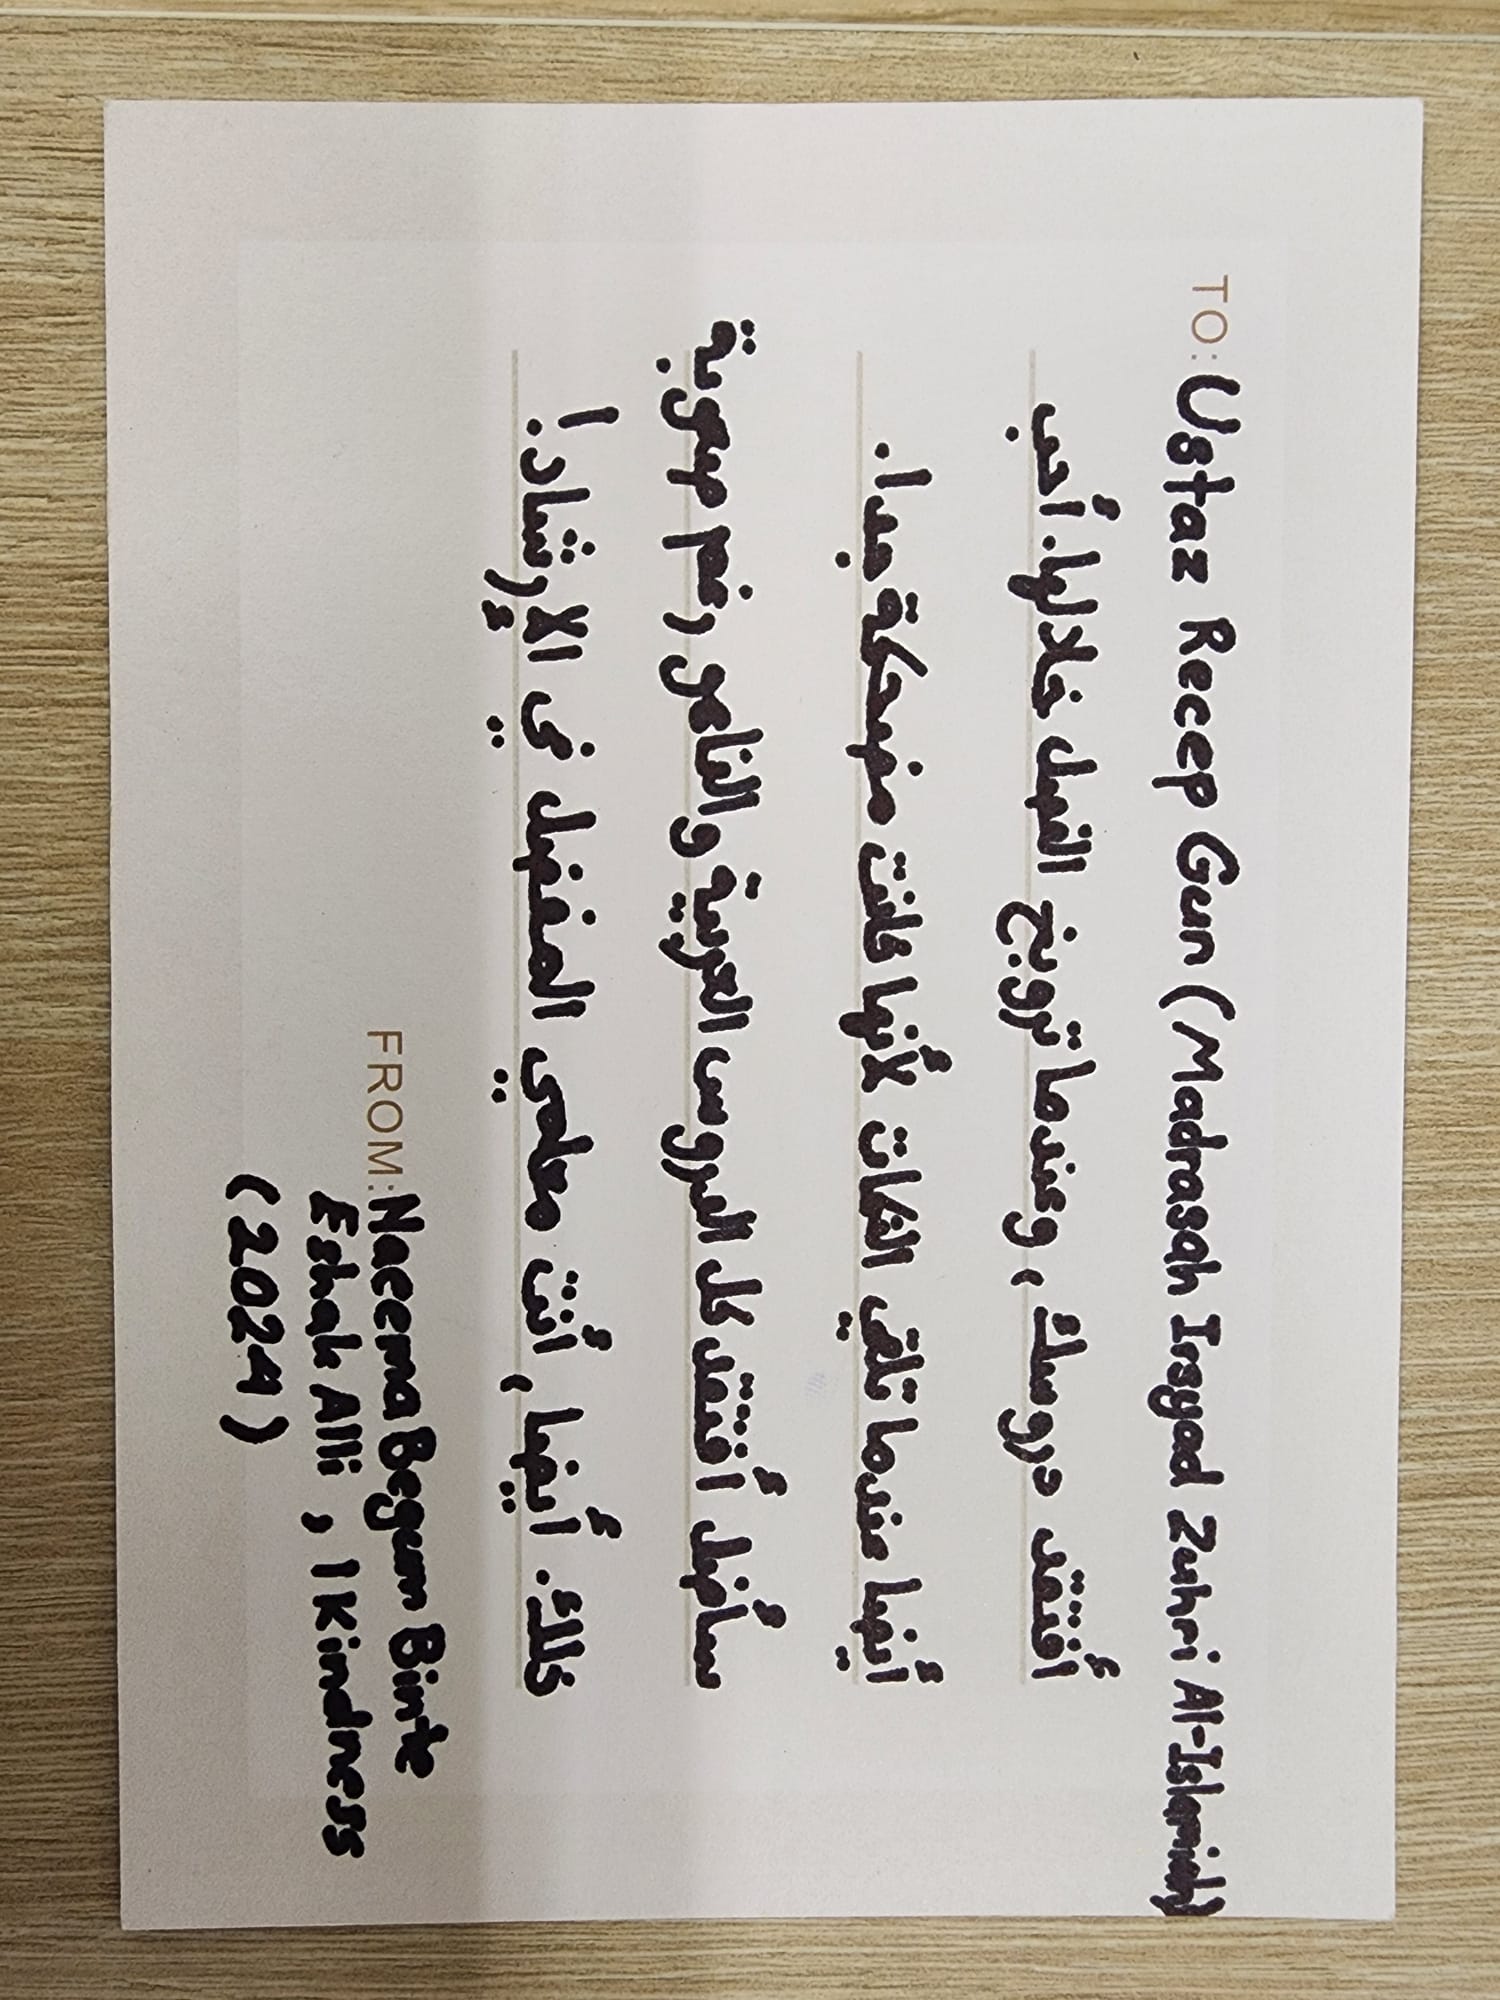 TO: Ustaz Recep Gun (Madrasah Irsyad Zuhri Al-Islamiah)
أفتقد دروسك، وعندما تروبخ الفصل خلالها. أحب
أيضا عندما تلقي النكات لأنها كانت مضحكة جدا.
سأضل أفتقد كل الدروس العربية والناحو رغم صعوبة
ذلك. أيضا، أنت معلمي المفضل في الإرشاد!
FROM: Naeema Begum Binte
Eshak Alli, 1 Kindness
(2024)